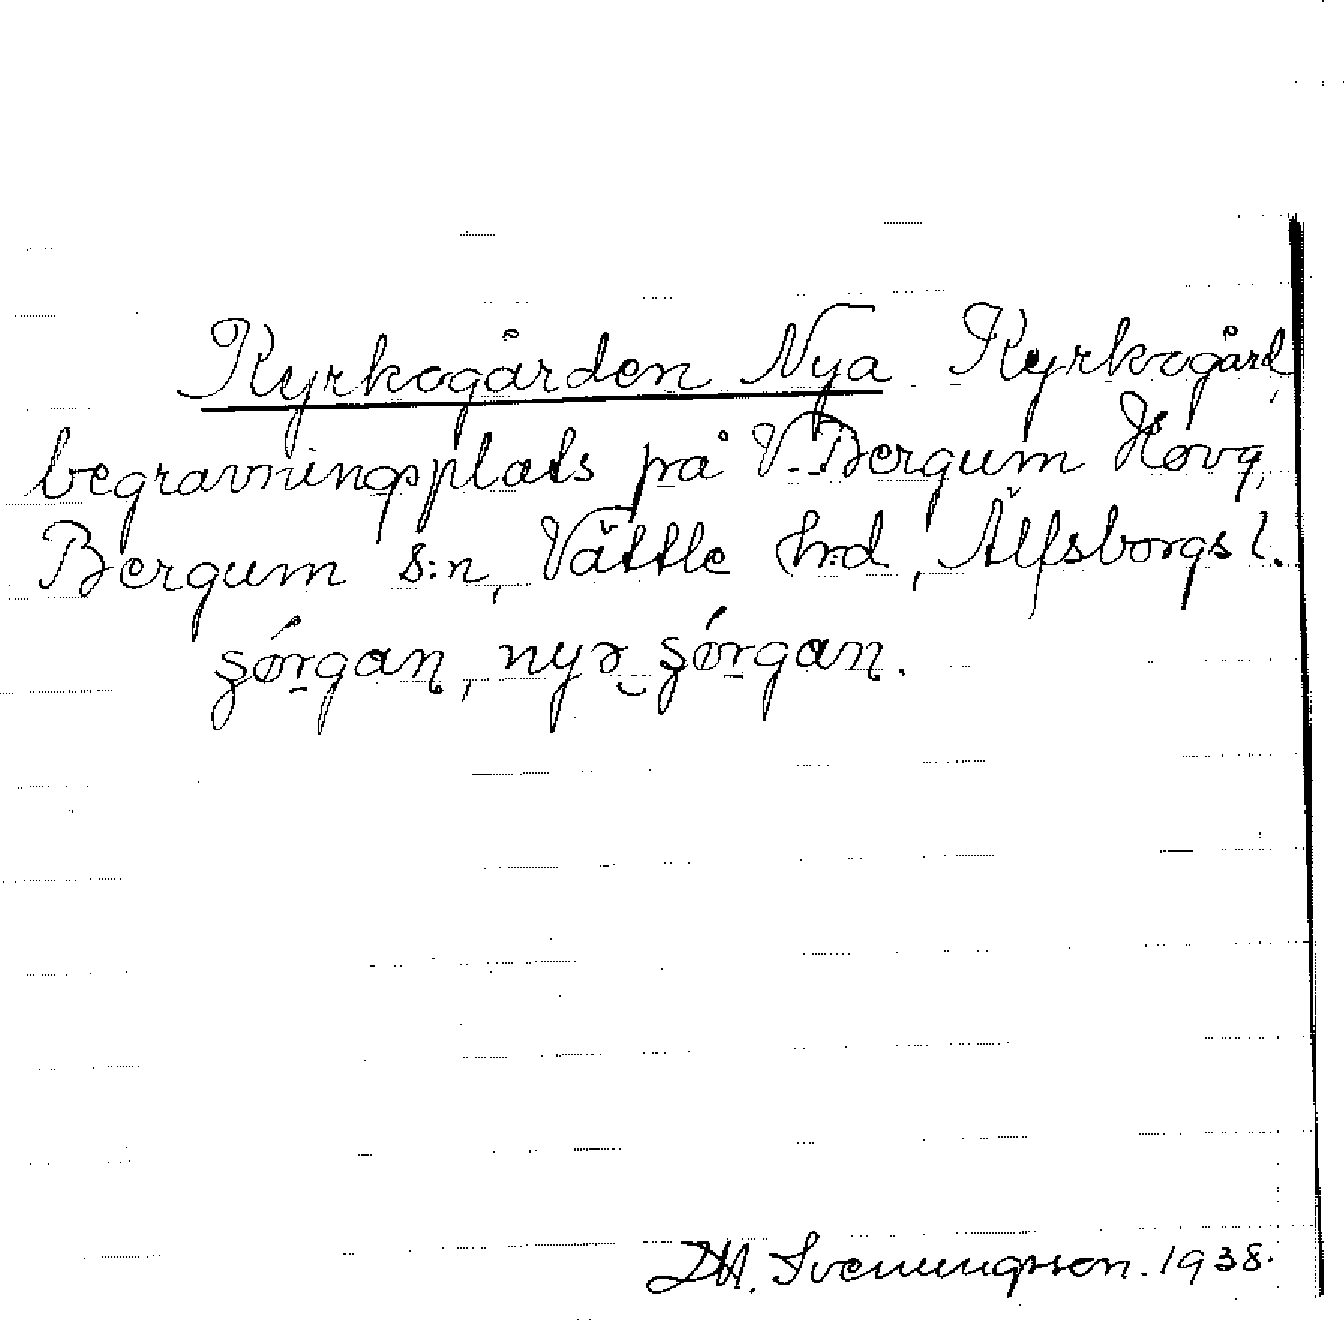 Kyrkogården Nya. Kyrkogård,
begravningsplats på V. Bergum Hovg,
Bergum s:n, Vättle hrd, Älfsborgs l.
nyə
Svenningsson. 1938.